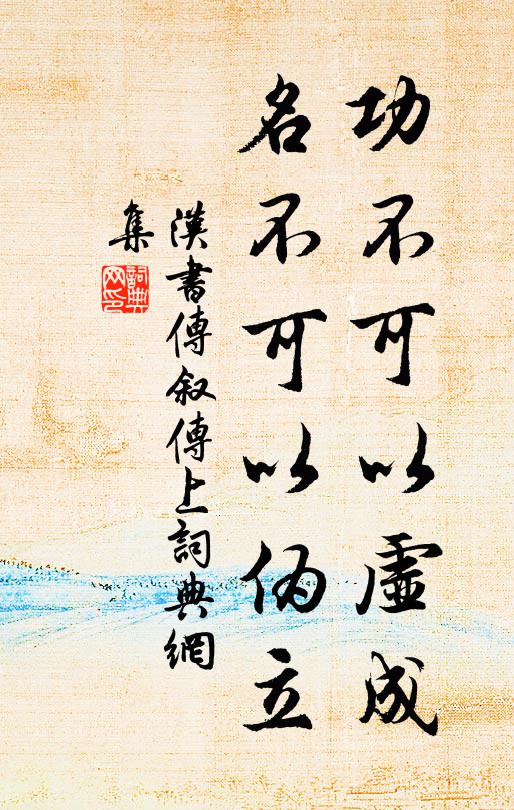 功不可以虛成
名不可以偽立
漢書傳叙傳上詞典網
集
詞典網印